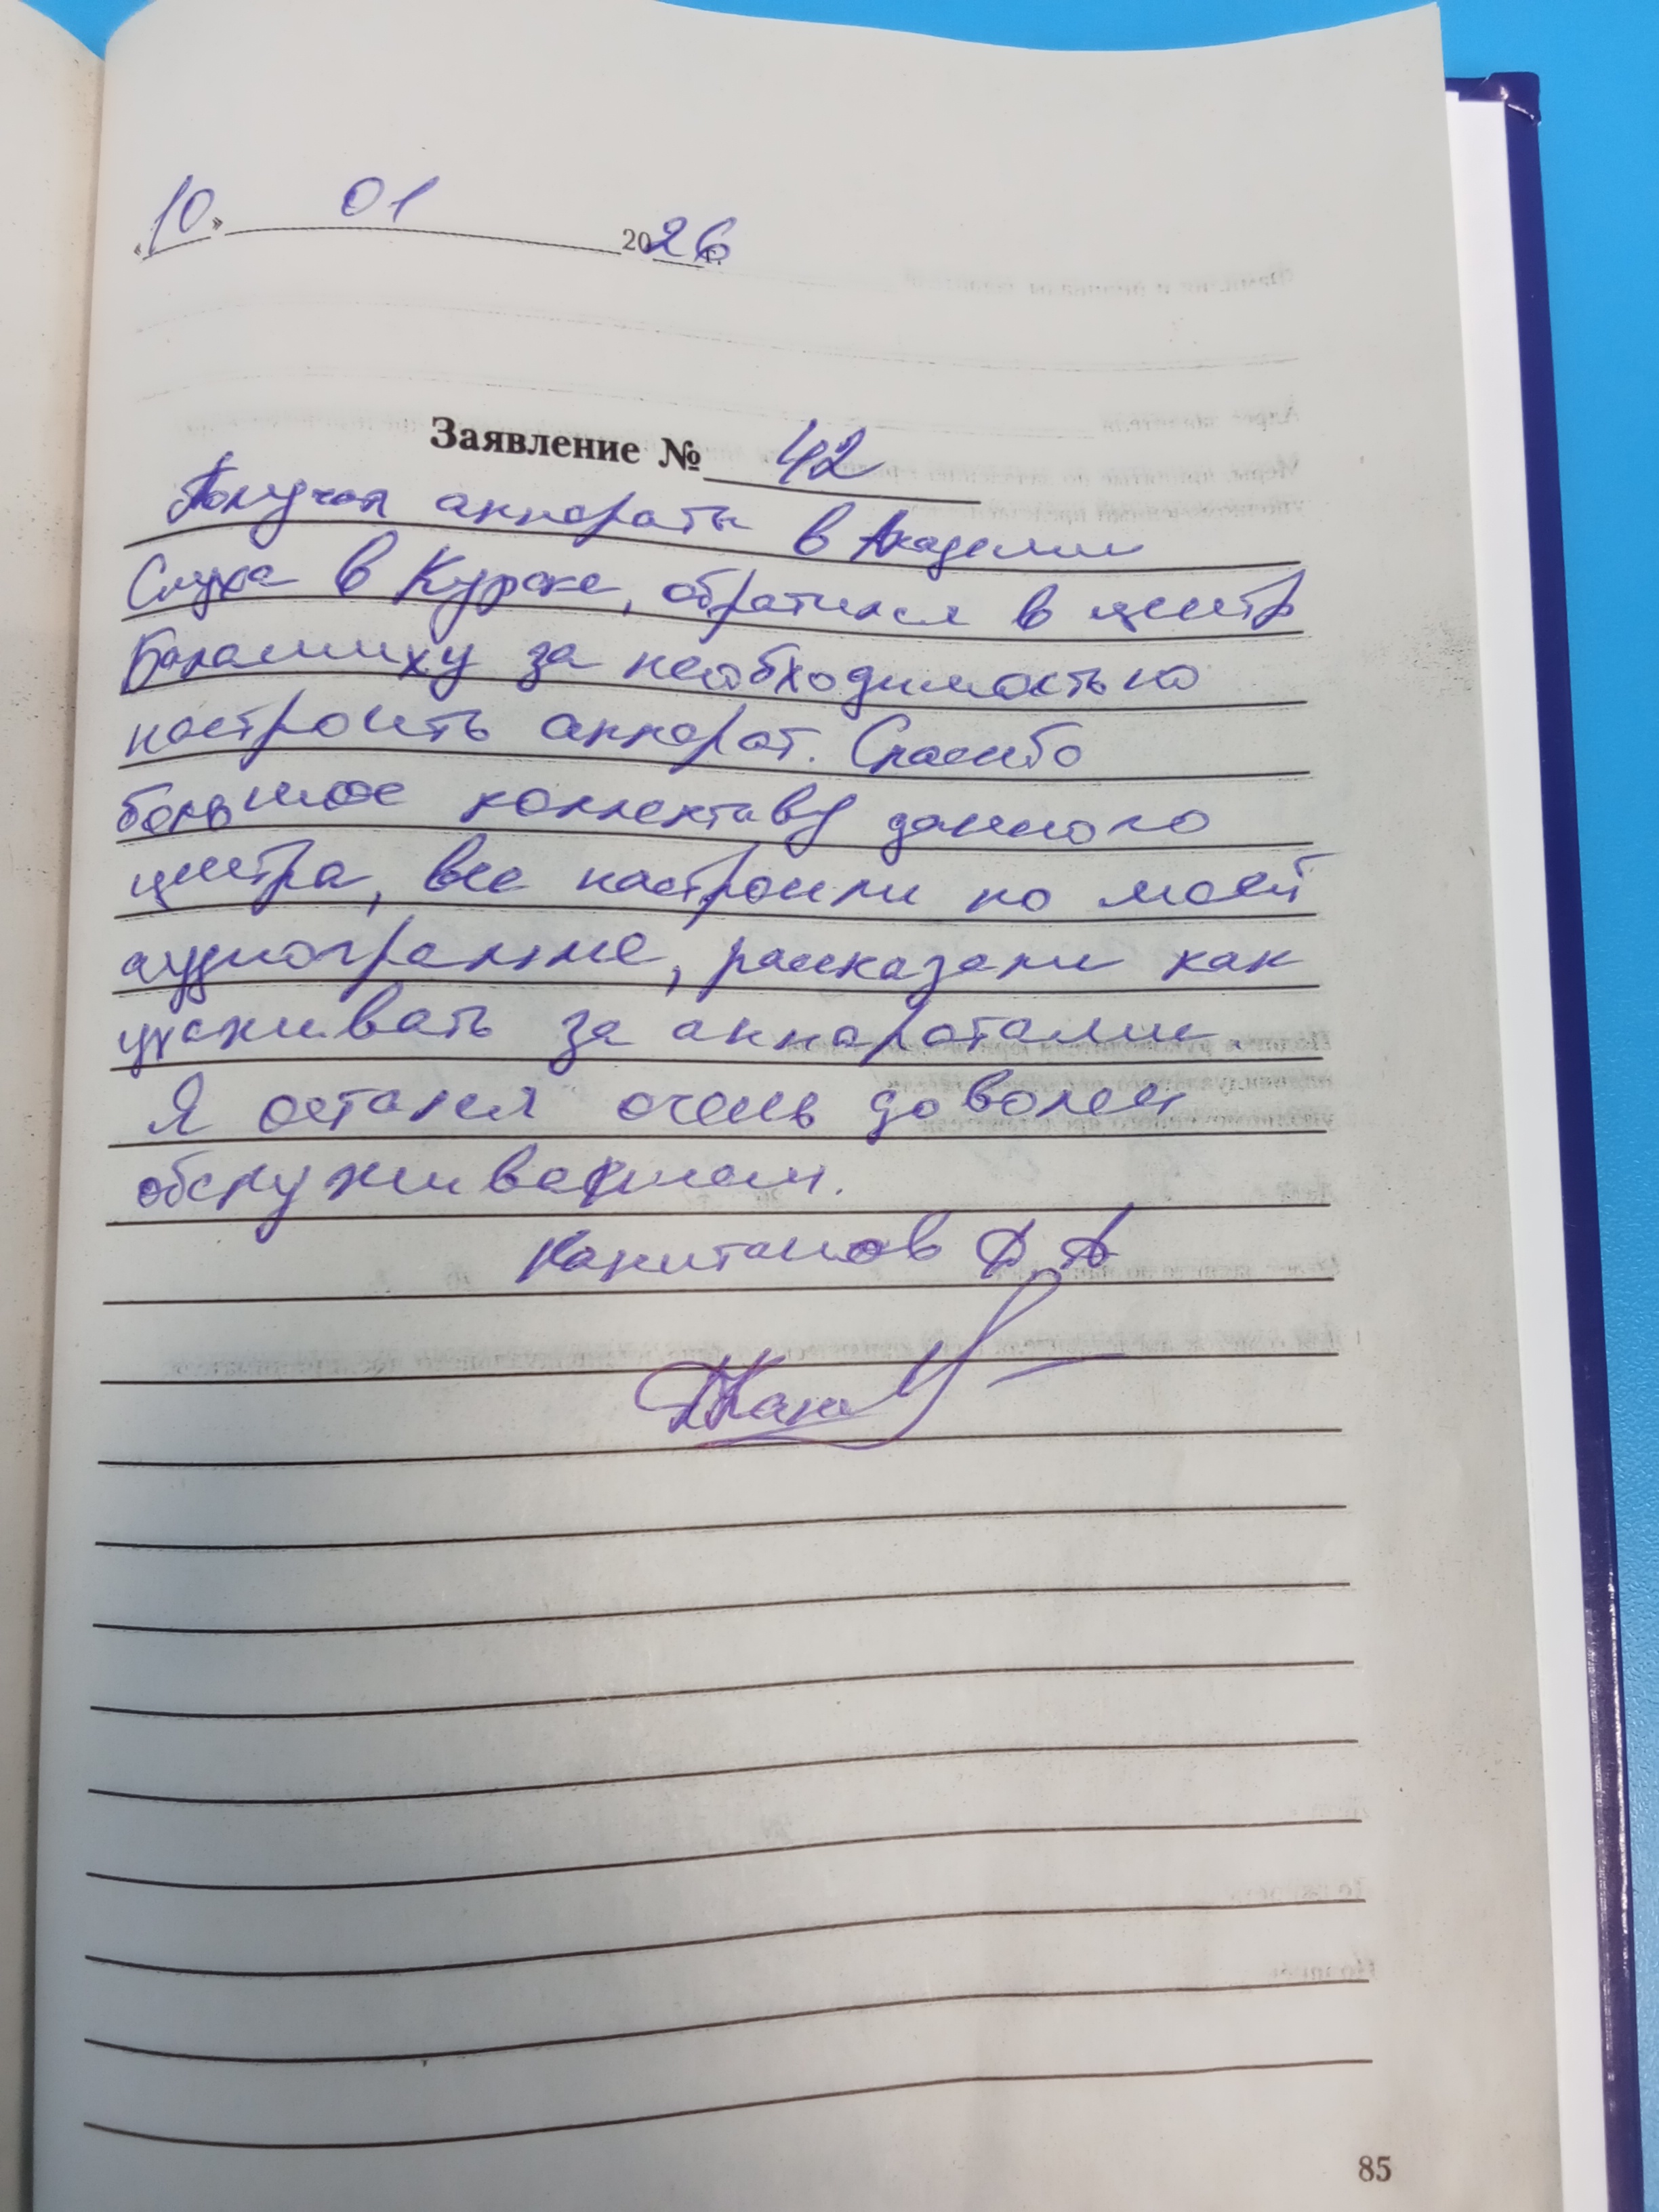 «10» 01 2026 г.
Заявление № 42
Получал аппараты в Академии
Слуха в Курске, обратился в центр
Балашиху за необходимостью
настроить аппарат. Спасибо
большое коллективу данного
центра, все настроили по моей
аудиограмме, рассказали как
ухаживать за аппаратами.
Я остался очень доволен
обслуживанием.
Капитанов Д.А
85